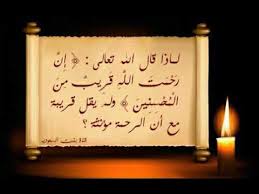 لماذا قال الله تعالى : ﴿ إِنَّ
رَحْمَتَ اللَّهِ قَرِيبٌ مِنَ
الْمُحْسِنِينَ ﴾ ولم يقل قريبة
مع أن الرحمة مؤنثة ؟